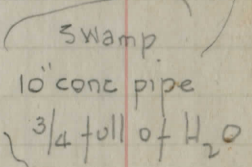 Swamp
10" conc pipe
3/4 full of H2O